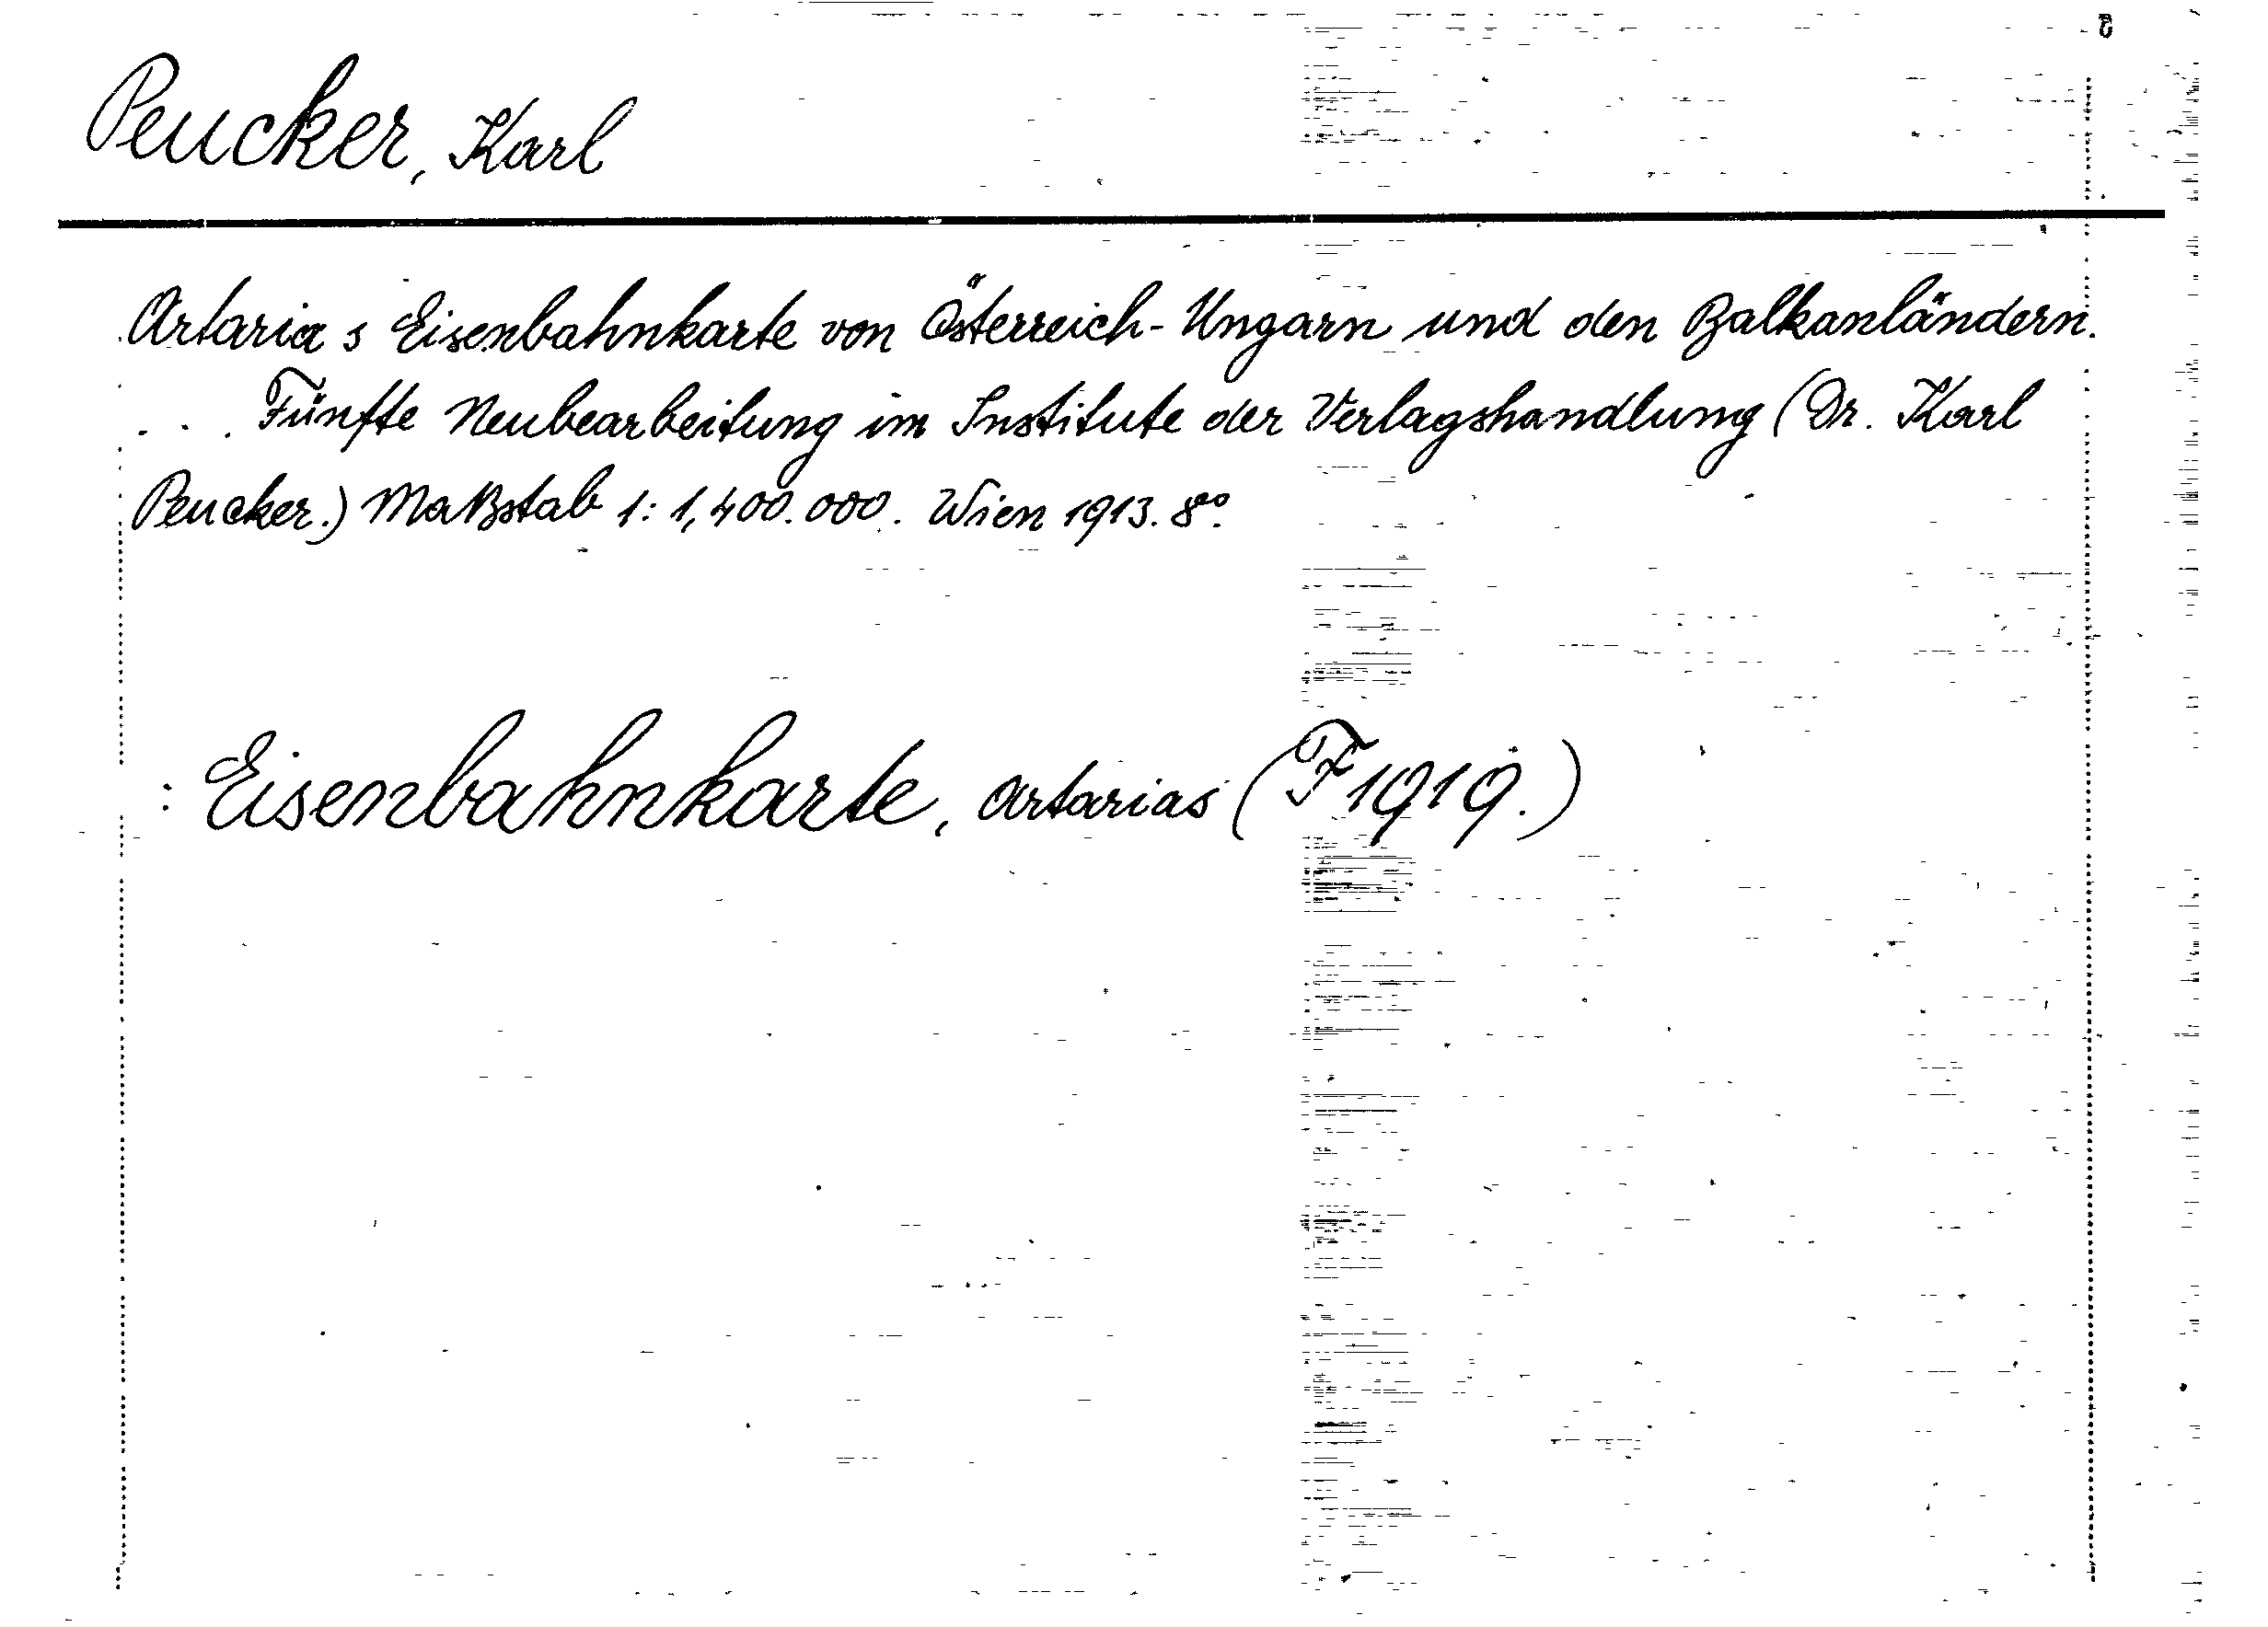 Peucker, Karl
Artaria s Eisenbahnkarte von Österreich-Ungarn und den Balkanländern.
... Fünfte Neubearbeitung im Institute der Verlagshandlung (Dr. Karl
Peucker.) Maßstab 1:1,400.000. Wien 1913. 8°.
: Eisenbahnkarte, Artarias (F1919.)